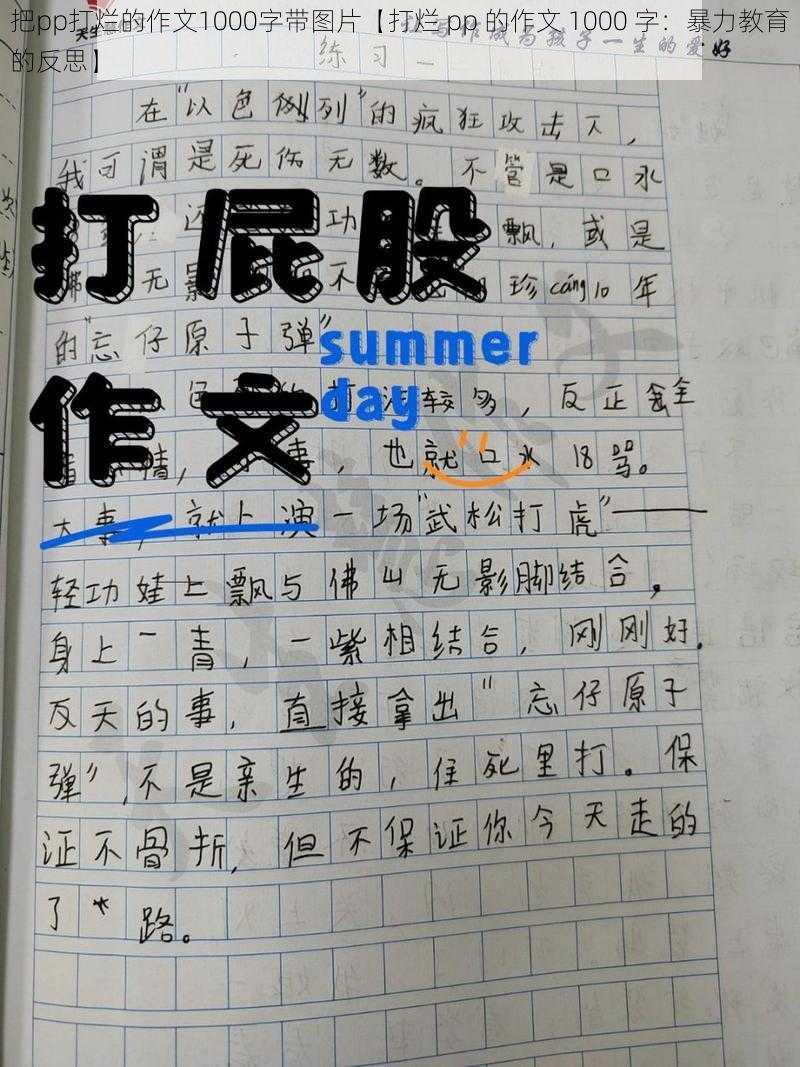 把pp打烂的作文1000字带图片【打烂 pp 的作文 1000 字：暴力教育
的反思】
天生
以写作成为孩子一生的爱好
练习一
在“以色例列”的疯狂攻击下，
我可谓是死伤无数。不管是口水
还 功 飘，或是
无影 不 珍cáng10年
的“忘仔原子弹”
打 较多，反正全
情， 事，也就口水18骂。
大事，就上演一场“武松打虎”——
轻功娃上飘与佛山无影脚结合，
身上一青，一紫相结合，刚刚好。
反天的事，直接拿出“忘仔原子
弹”，不是亲生的，往死里打。保
证不骨折，但不保证你今天走的
了 路。
打屁股
作文
summer
day